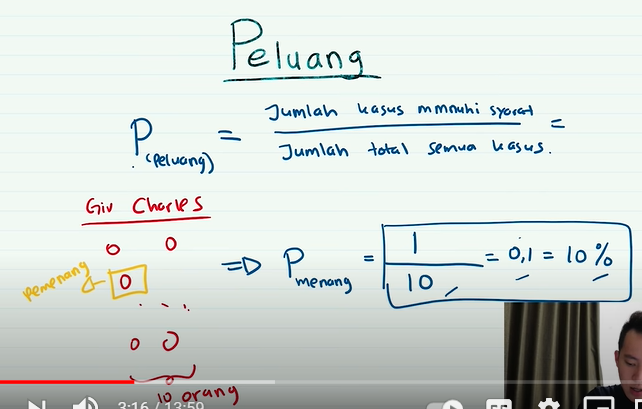 Peluang
P(peluang) = Jumlah kasus mmnuhi syarat =
Jumlah total semua kasus.
Giv Charles
O O
pemenang O
...
O O
10 orang
=> P menang = 1/10 = 0,1 = 10%
3:16 / 13:59